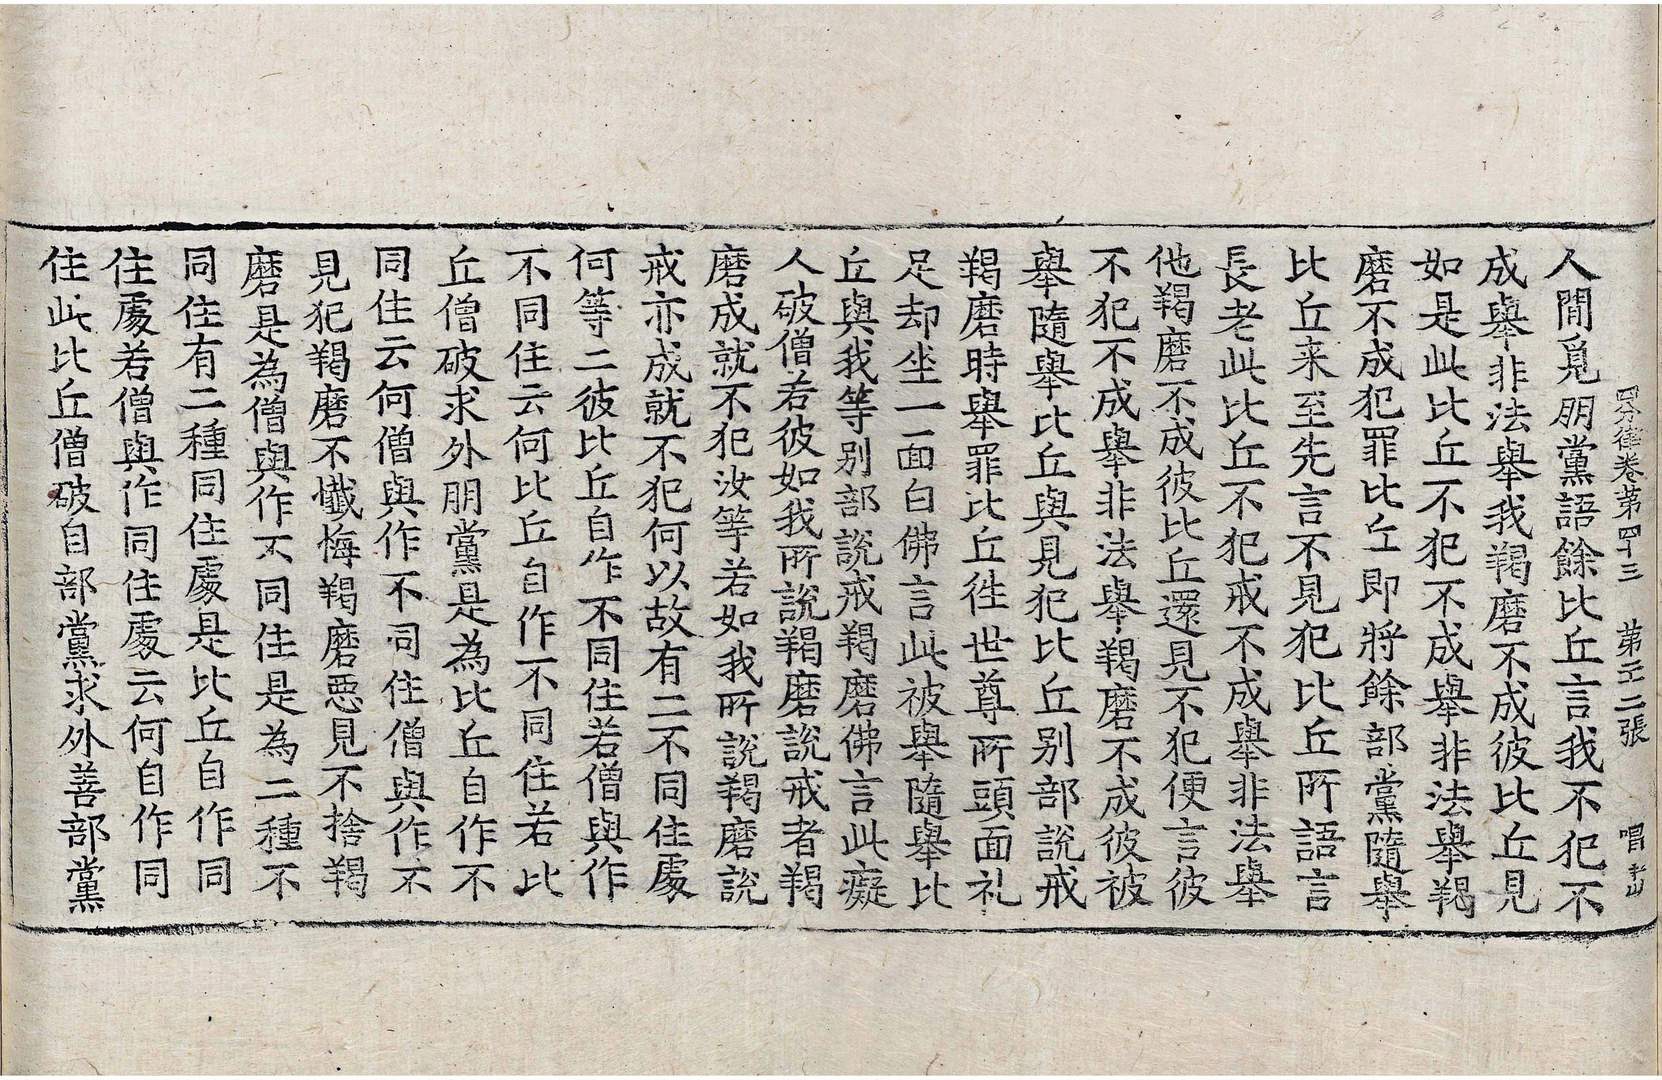 四分律卷第四十三　第二張　唱
人間覓朋黨語餘比丘言我不犯不
成舉非法舉我羯磨不成彼比丘見
如是此比丘不犯不成舉非法舉羯
磨不成犯罪比丘即將餘部黨隨舉
比丘来至先言不見犯比丘所語言
長老此比丘不犯戒不成舉非法舉
他羯磨不成彼比丘還見不犯便言彼
不犯不成舉非法舉羯磨不成彼被
舉隨舉比丘與見犯比丘别部說戒
羯磨時舉罪比丘徃世尊所頭面礼
足却坐一面白佛言此被舉隨舉比
丘與我等别部說戒羯磨佛言此癡
人破僧若彼如我所說羯磨說戒者羯
磨成就不犯汝等若如我所說羯磨說
戒亦成就不犯何以故有二不同住處
何等二彼比丘自作不同住若僧與作
不同住云何比丘自作不同住若比
丘僧破求外朋黨是為比丘自作不
同住云何僧與作不同住僧與作不
見犯羯磨不懺悔羯磨惡見不捨羯
磨是為僧與作不同住是為二種不
同住有二種同住處是比丘自作同
住處若僧與作同住處云何自作同
住此比丘僧破自部黨求外善部黨